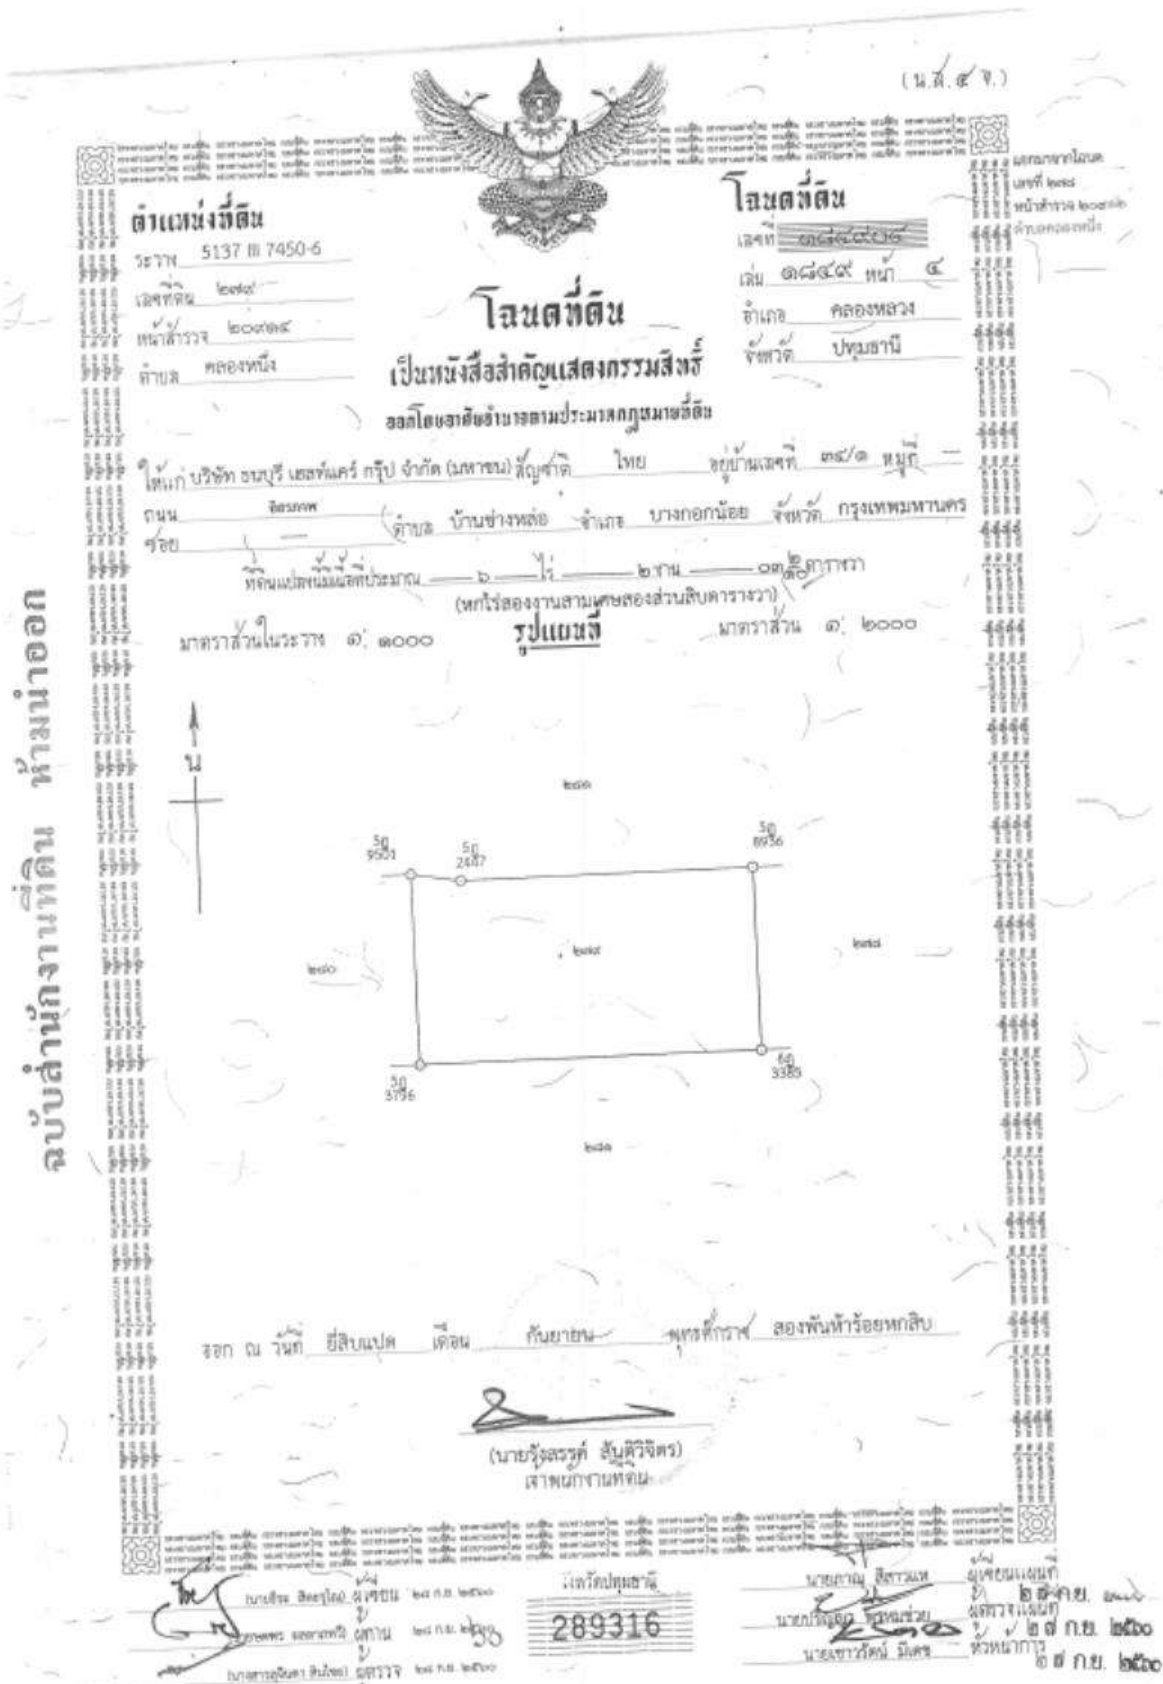 (น.ส.๔ จ.)
แยกมาจากโฉนด
เลขที่
หน้าสำรวจ
ตำบลคลองหนึ่ง
ตำแหน่งที่ดิน
ระวาง 5137 III 7450-6
เลขที่ดิน ๒๗๙
หน้าสำรวจ
ตำบล คลองหนึ่ง
โฉนดที่ดิน
เลขที่
เล่ม ๑๘๔๙ หน้า ๔
อำเภอ คลองหลวง
จังหวัด ปทุมธานี
โฉนดที่ดิน
เป็นหนังสือสำคัญแสดงกรรมสิทธิ์
ออกโดยอาศัยอำนาจตามประมวลกฎหมายที่ดิน
ให้แก่ บริษัท ธนบุรี เฮลท์แคร์ กรุ๊ป จำกัด (มหาชน) สัญชาติ ไทย อยู่บ้านเลขที่ ๓๔/๑ หมู่ที่ —
ถนน อิสรภาพ
ซอย — ตำบล บ้านช่างหล่อ อำเภอ บางกอกน้อย จังหวัด กรุงเทพมหานคร
ที่ดินแปลงนี้มีเนื้อที่ประมาณ ๖ ไร่ ๒ งาน ๐๓ ๒/๑๐ ตารางวา
(หกไร่สองงานสามเศษสองส่วนสิบตารางวา)
มาตราส่วนในระวาง ๑: ๑๐๐๐ รูปแผนที่ มาตราส่วน ๑: ๒๐๐๐
น
๒๘๑
5ฎ
9501
5ฎ
2487
5ฎ
8936
๒๘๐
๒๗๙
๒๗๘
5ฎ
3796
6ฎ
3385
๒๘๑
ออก ณ วันที่ ยี่สิบแปด เดือน กันยายน พุทธศักราช สองพันห้าร้อยหกสิบ
(นายรังสรรค์ สันติวิจิตร)
เจ้าพนักงานที่ดิน
ผู้เขียน ๒๘ ก.ย. ๒๕๖๐
ผู้ทาน ๒๘ ก.ย. ๒๕๖๐
ผู้ตรวจ ๒๘ ก.ย. ๒๕๖๐
จังหวัดปทุมธานี
289316
นายภาณุ สีสาวแห ผู้เขียนแผนที่
๒๗ ก.ย.
นายปริญญา พรหมช่วย ผู้ตรวจแผนที่
๒๗ ก.ย. ๒๕๖๐
นายเชาวรัตน์ มีเดช หัวหน้าการ
๒๗ ก.ย. ๒๕๖๐
ฉบับสำนักงานที่ดิน ห้ามนำออก